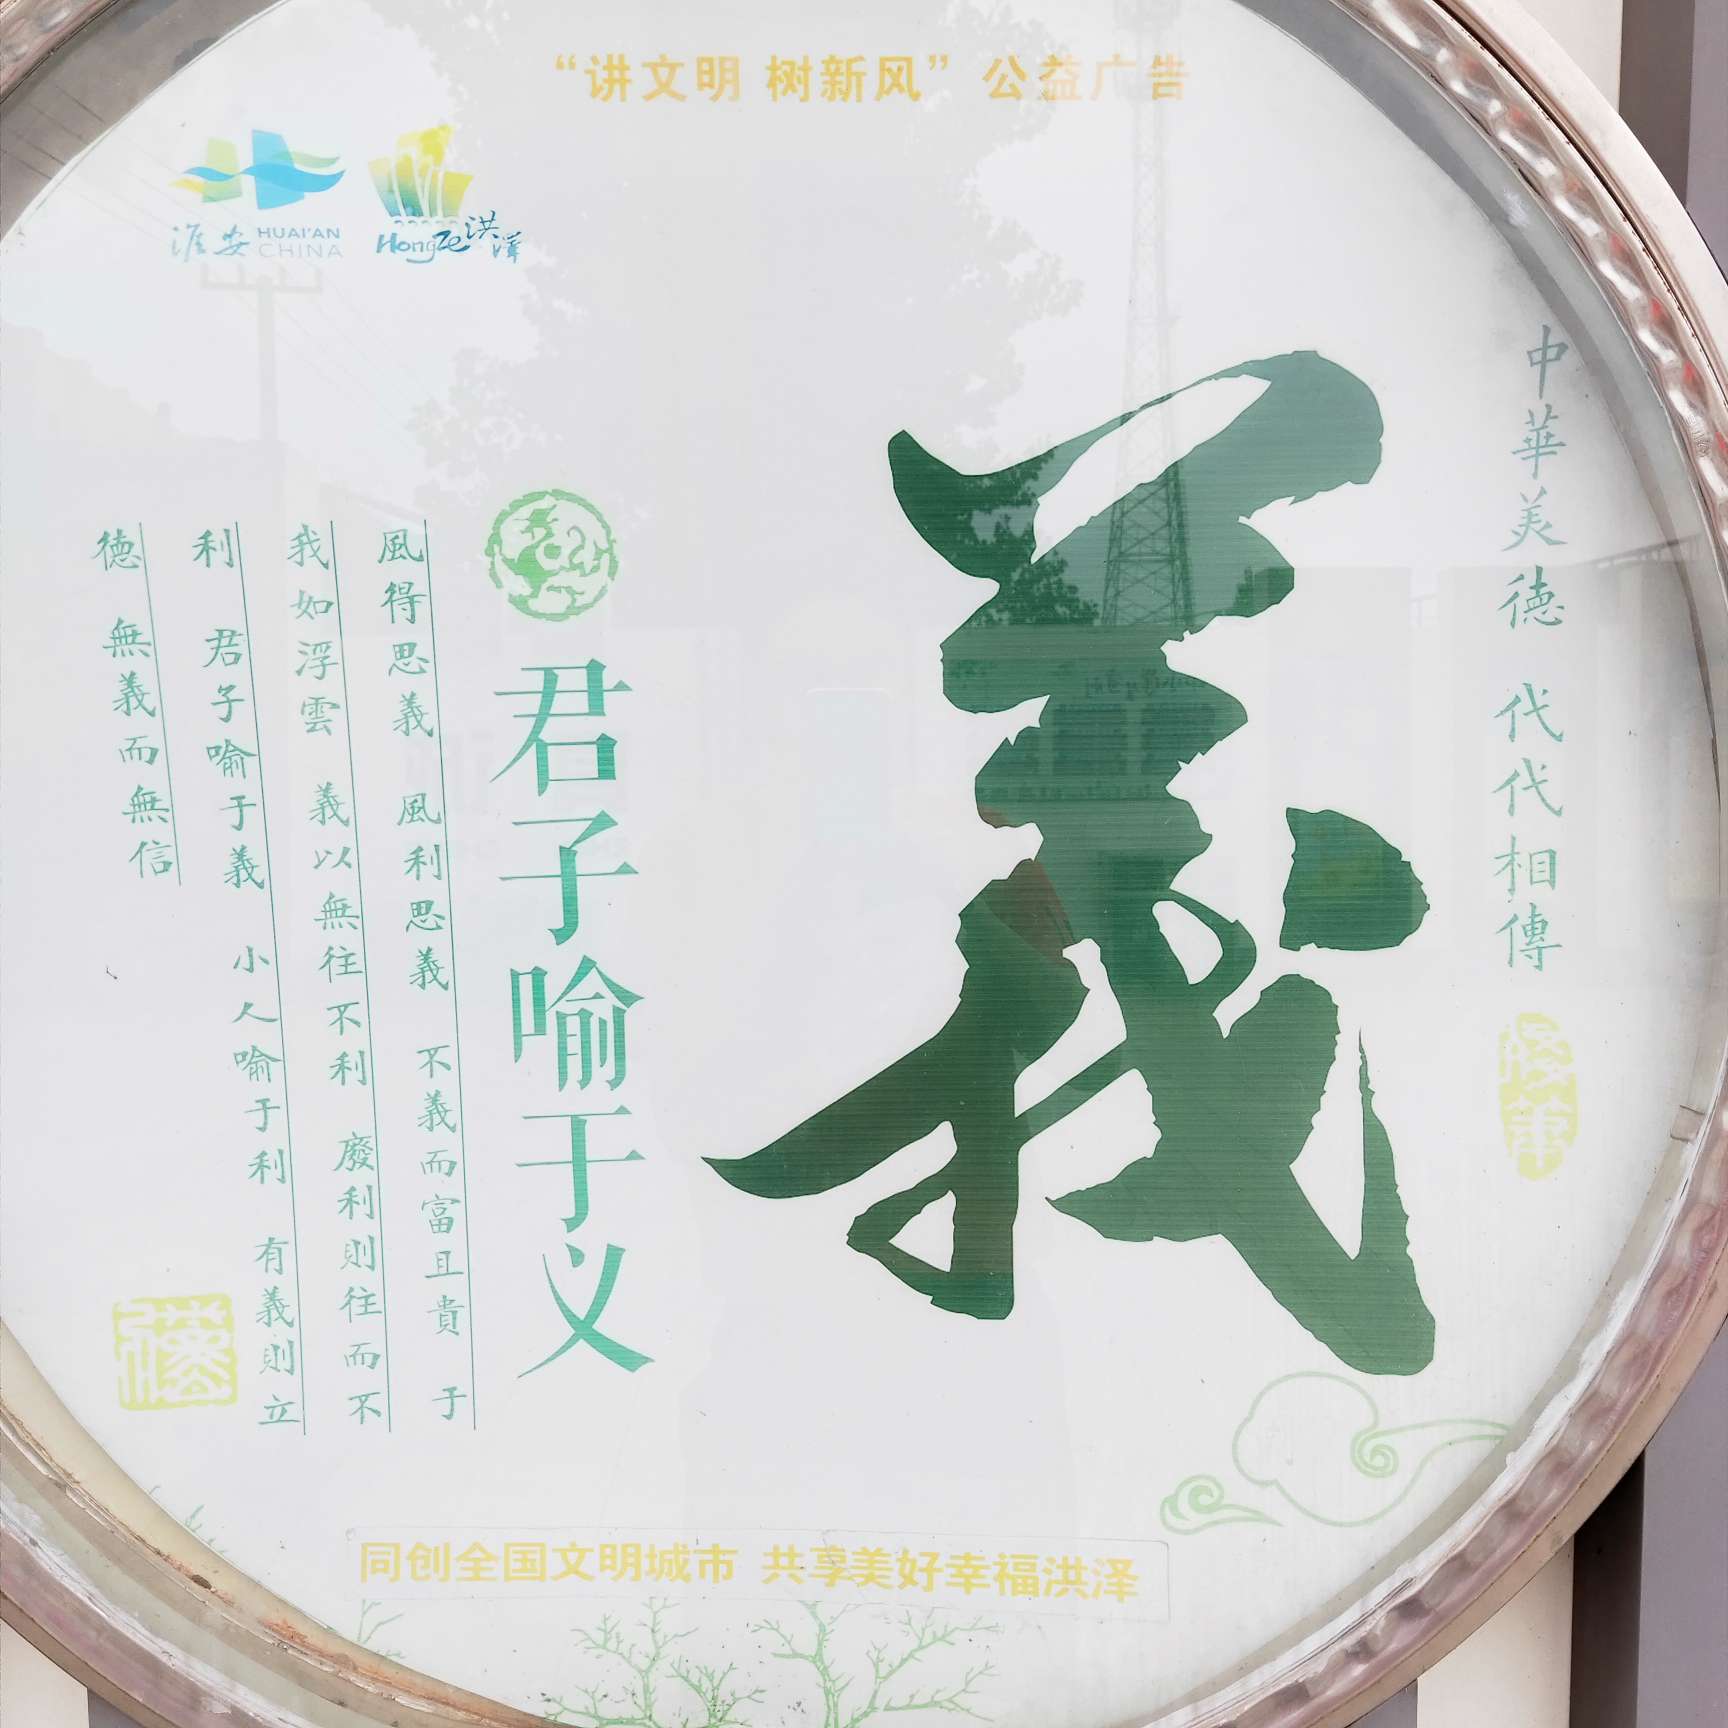 “讲文明 树新风”公益广告
淮安 HUAI'AN
CHINA
HongZe洪泽
中華美德 代代相傳
義
君子喻于义
風得思義 風利思義 不義而富且貴 于
我如浮雲 義以無往不利 廢利則往而不
利 君子喻于義 小人喻于利 有義則立
德 無義而無信
同创全国文明城市 共享美好幸福洪泽